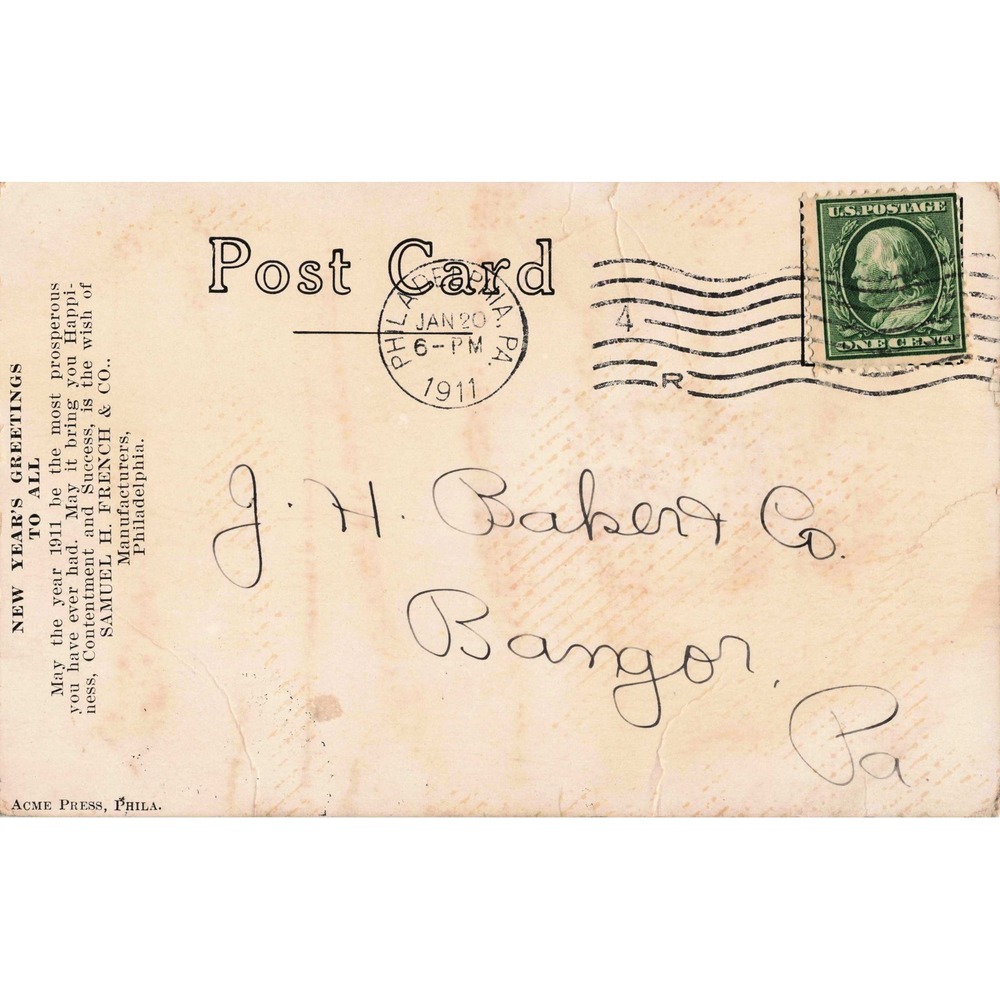 Post Card
U.S. POSTAGE
ONE CENT
PHILADELPHIA, PA.
JAN 20
6-PM
1911
4
R
NEW YEAR'S GREETINGS
TO ALL
May the year 1911 be the most prosperous
you have ever had. May it bring you Happi-
ness, Contentment and Success, is the wish of
SAMUEL H. FRENCH & CO.,
Manufacturers,
Philadelphia.
J. H. Baker & Co.
Bangor,
Pa.
ACME PRESS, PHILA.